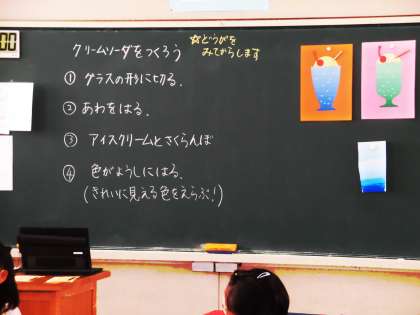 クリームソーダをつくろう
☆どうがを
みてからします
① グラスの形に切る。
② あわをはる。
③ アイスクリームとさくらんぼ
④ 色がようしにはる。
(きれいに見える色をえらぶ!)
00